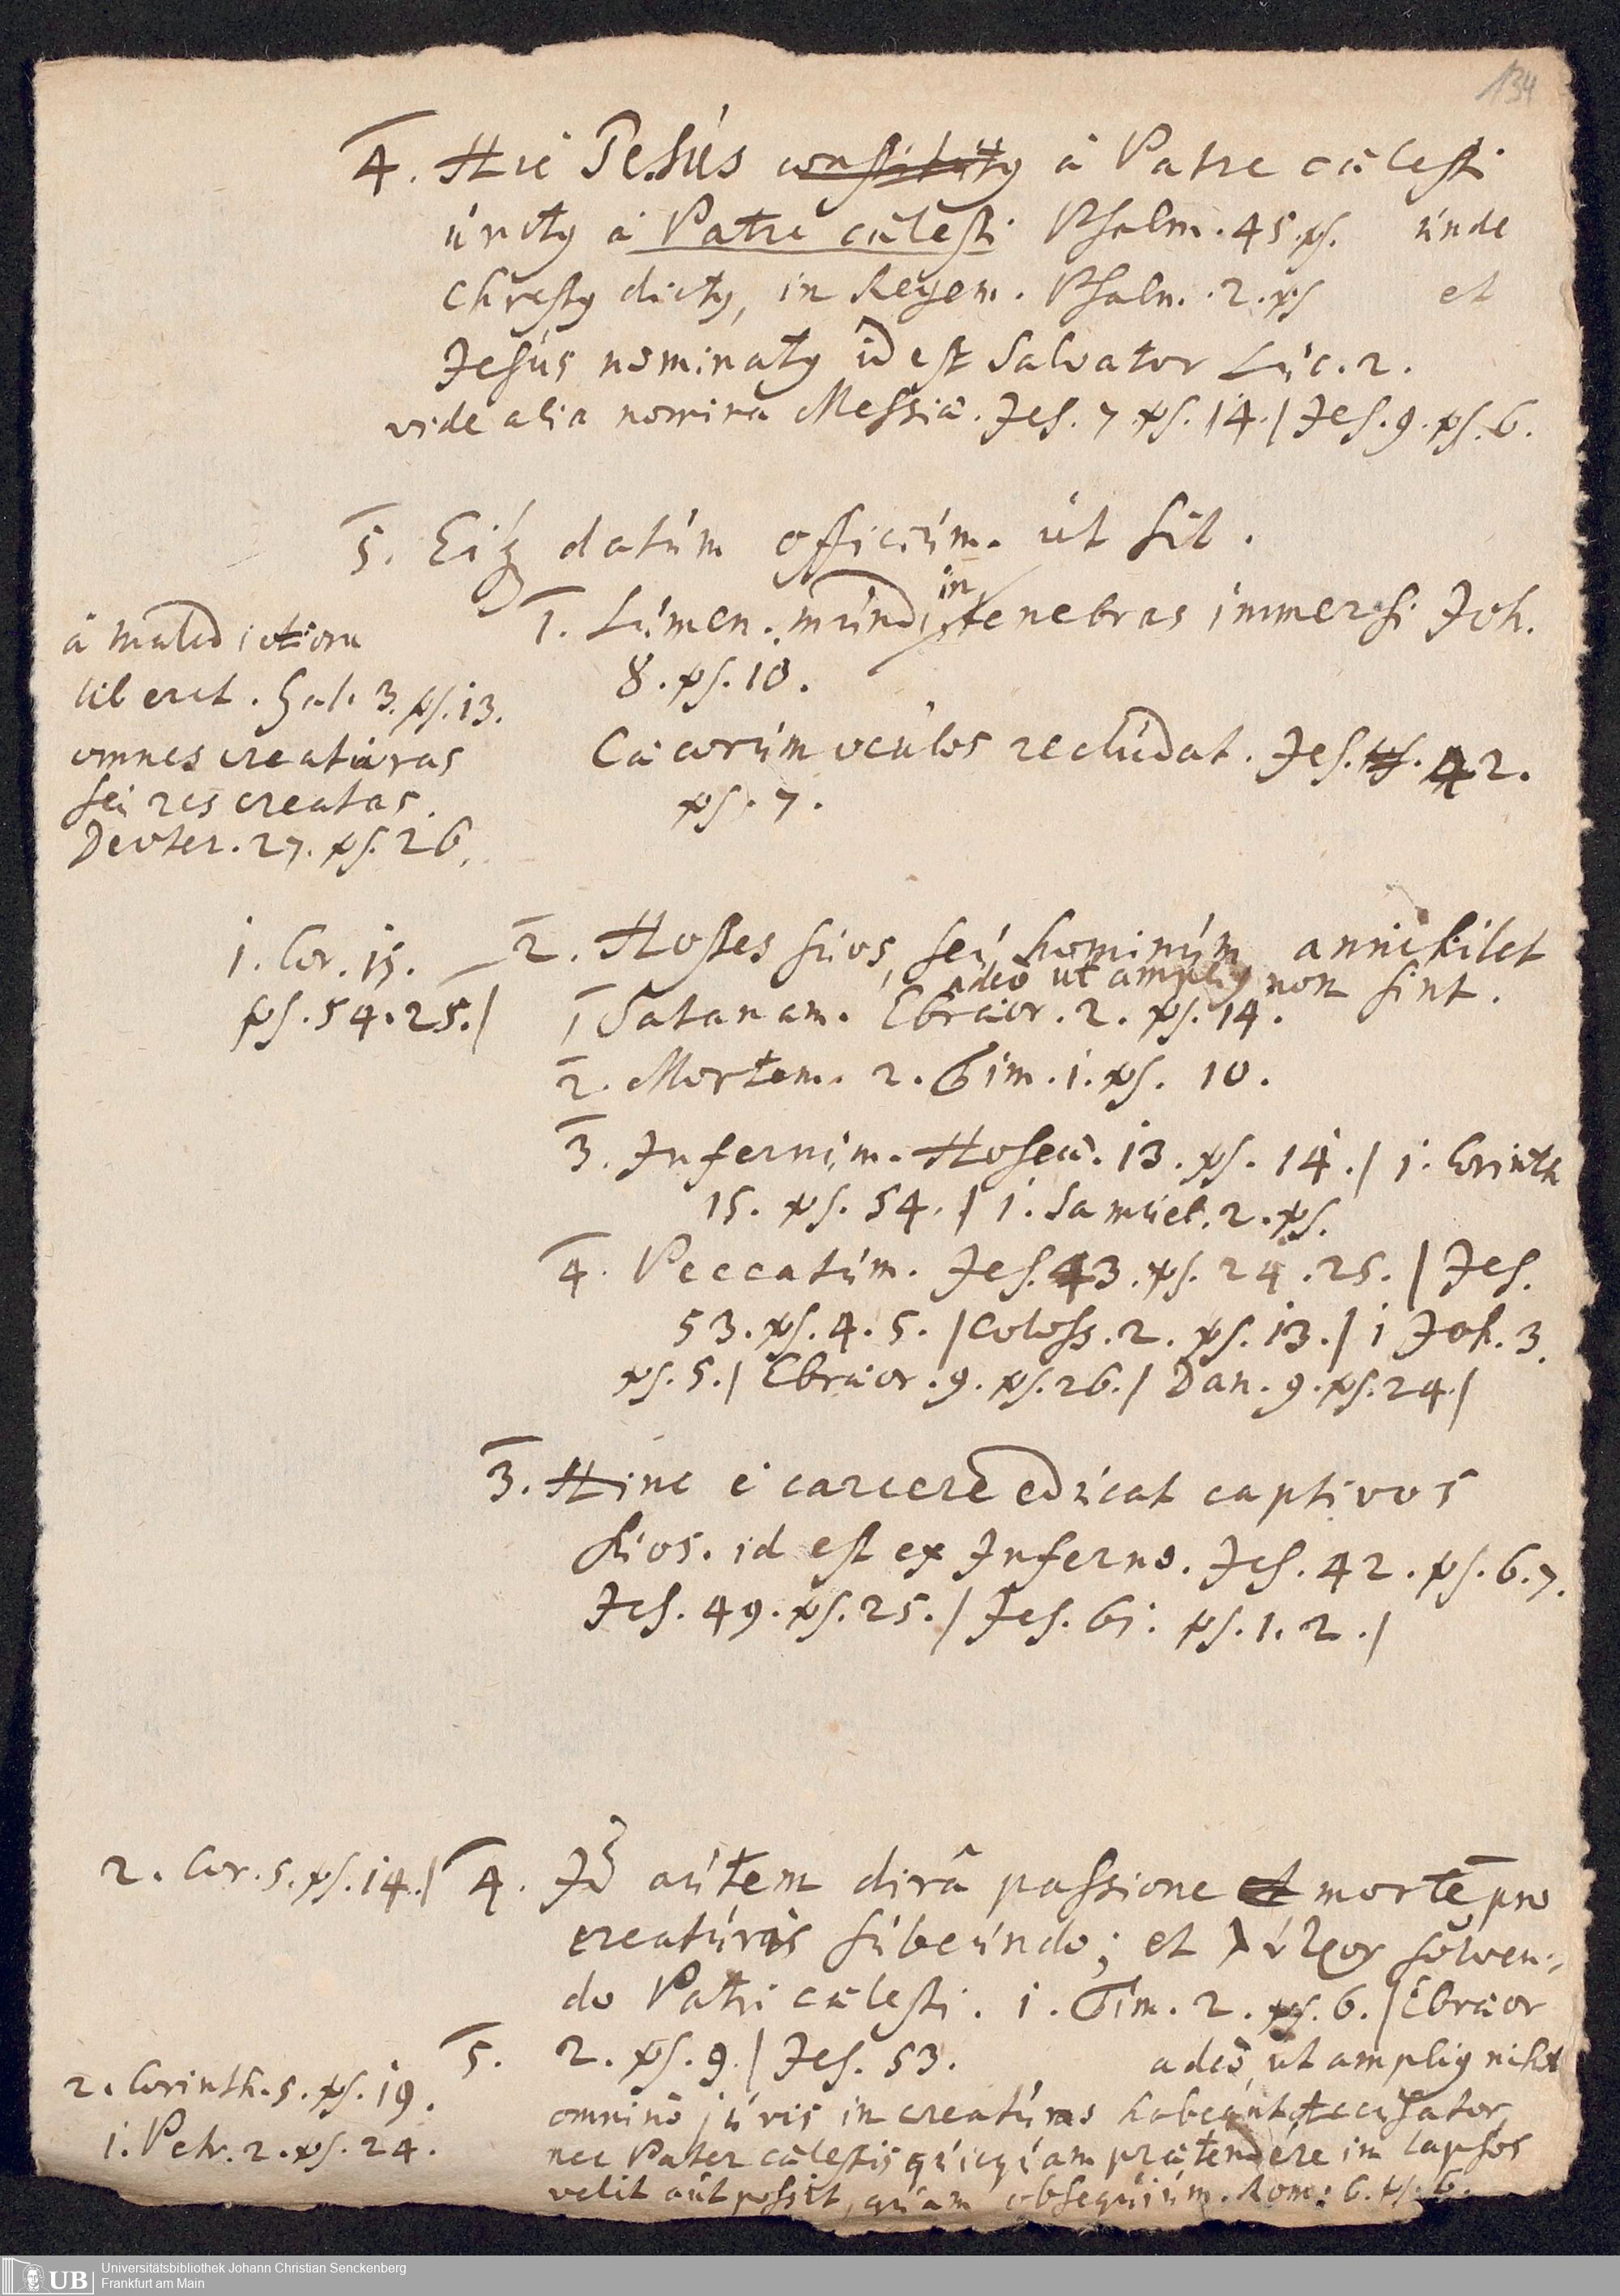 134
4. Hic Jesus constitutꝰ à Patre cælesti
unctꝰ à Patre cælesti Psalm. 45. ps. unde
Christꝰ dictꝰ, in Regem. Psalm. 2. ps et
Jesus nominatꝰ id est Salvator Luc. 2.
vide alia nomina Messiæ. Jes. 7 ps. 14. / Jes. 9. ps. 6.
5. Eiq datum officium. ut sit.
1. Lumen. mundi in tenebras immersi Joh.
8. ps. 10.
Cæcorum oculos recludat. Jes. 42.
ps. 7.
à maledictione
liberet. Gal. 3. ps. 13.
omnes creaturas
seu res creatas.
Deuter. 27. ps. 26.
1. Cor. 15.
ps. 54. 25. /
2. Hostes suos, seu hominum annihilet
adeò ut ampliꝰ non sint.
1 Satanam. Ebræor. 2. ps. 14.
2. Mortem. 2. Tim. 1. ps. 10.
3. Infernum. Hoseæ. 13. ps. 14. / 1. Corinth
15. ps. 54. / 1. Samuel. 2. ps.
4. Peccatum. Jes. 43. ps. 24. 25. / Jes.
53. ps. 4. 5. / Coloss. 2. ps. 13. / 1 Joh. 3.
ps. 5. / Ebræor. 9. ps. 26. / Dan. 9. ps. 24. /
3. Hinc è carcere educat captivos
suos. id est ex Inferno. Jes. 42. ps. 6. 7.
Jes. 49. ps. 25. / Jes. 61. ps. 1. 2. /
2. Cor. 5. ps. 14. /
4. Id autem dirâ passione et morte pro
creaturis subeundo; et λύτρον solven-
do Patri cælesti. 1. Tim. 2. ps. 6. / Ebræor
5. 2. ps. 9. / Jes. 53. adeò, ut ampliꝰ nihil
2. Corinth. 5. ps. 19.
1. Petr. 2. ps. 24.
omninò juris in creaturas habeant accusator,
nec Pater cælestis quicquam prætendere in lapsos
velit aut possit, quam obsequium. Rom. 6. ps. 6.
UB Universitätsbibliothek Johann Christian Senckenberg
Frankfurt am Main